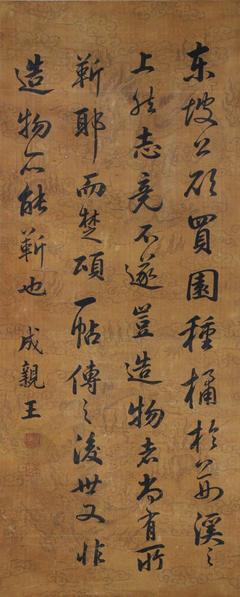 東坡公欲買園種橘於荆溪之
上然志竟不遂豈造物者尚有所
靳耶而楚頌一帖傳之後世又非
造物所能靳也 成親王